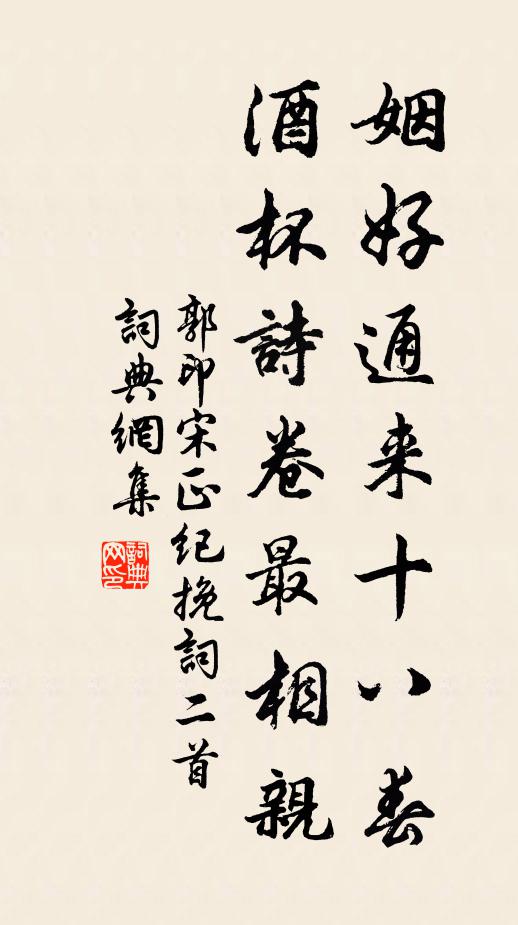 姻好通来十八春
酒杯詩卷最相親
郭印宋正纪挽詞二首
詞典網集
詞典网印